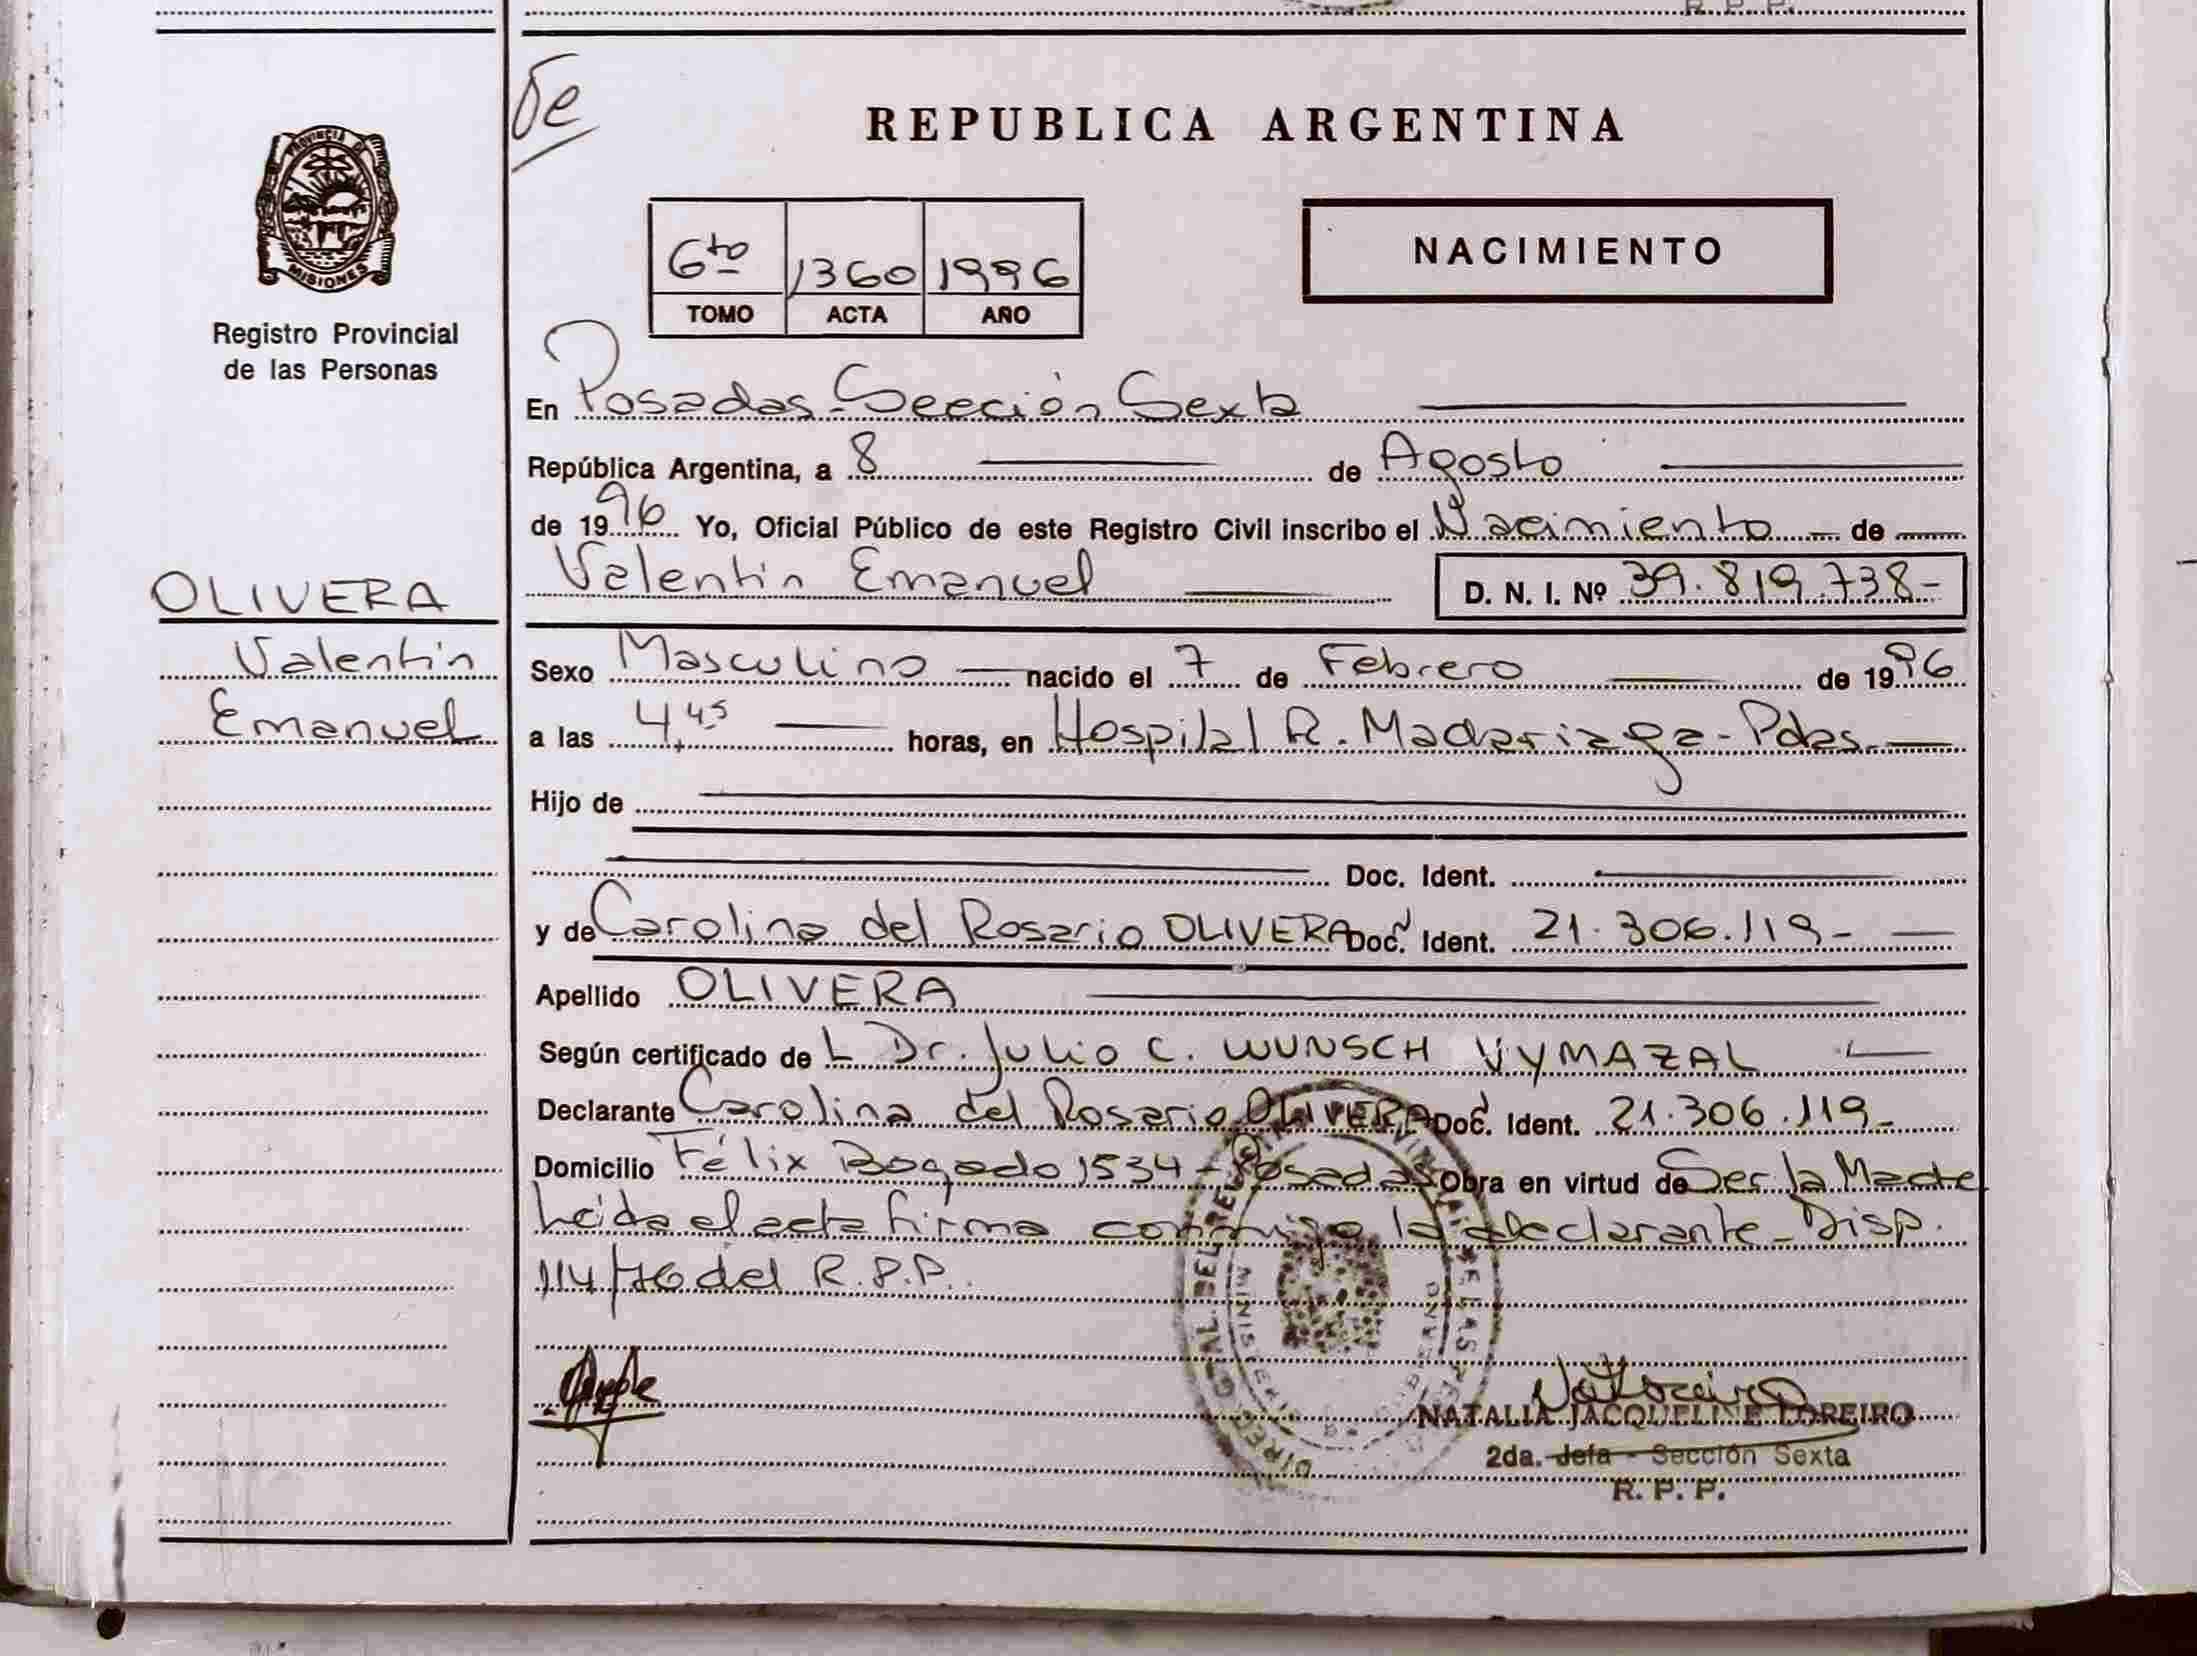 R. P. P.
De
PROVINCIA DE
MISIONES
Registro Provincial
de las Personas
REPUBLICA ARGENTINA
6to 1360 1996
TOMO ACTA AÑO
NACIMIENTO
En Posadas - Sección Sexta
República Argentina, a 8 de Agosto
de 1996 Yo, Oficial Público de este Registro Civil inscribo el Nacimiento de
OLIVERA
Valentín Emanuel D. N. I. Nº 39.819.738-
Valentín
Emanuel
Sexo Masculino nacido el 7 de Febrero de 1996
a las 4,45 horas, en Hospital R. Madariaga - Pdas.
Hijo de
Doc. Ident.
y de Carolina del Rosario OLIVERA Doc. Ident. 21.306.119-
Apellido OLIVERA
Según certificado de L Dr. Julio C. WUNSCH VYMAZAL
Declarante Carolina del Rosario OLIVERA Doc. Ident. 21.306.119-
Domicilio Félix Bogado 1534 - Posadas Obra en virtud de Ser la Madre
Leída el acta firma conmigo la declarante - Disp.
114/76 del R.P.P.
NATALIA JACQUELINE LOREIRO
2da. Jefa - Sección Sexta
R. P. P.